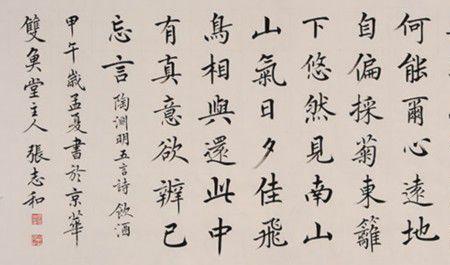 何能爾心遠地
自偏採菊東籬
下悠然見南山
山氣日夕佳飛
鳥相與還此中
有真意欲辨已
忘言 陶淵明五言詩飲酒
甲午歲孟夏書於京華
雙魚堂主人張志和